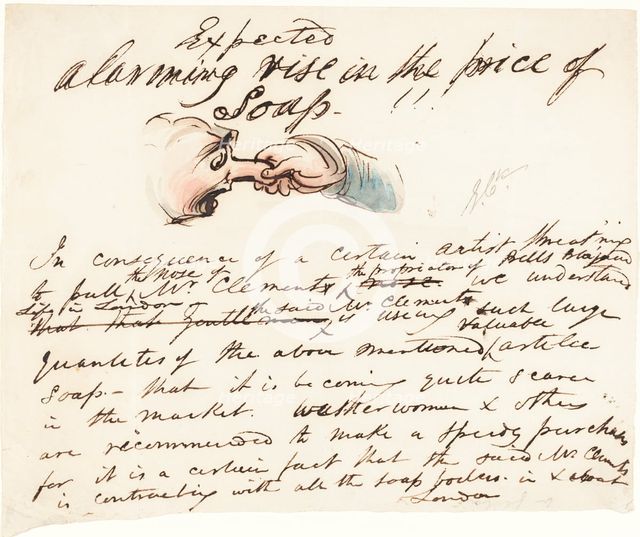 Expected
alarming rise in the price of
Soap. !!
Heritage Heritage
G. Ck.
In consequence of a certain artist threat'ning
to pull the nose of Mr. Clement x the propriator of Bells
Life in London we understand
that that Gentleman x the said Mr. Clement is using such large
valuable
quantities of the above mentioned article
Soap - that it is becoming quite scarce
in the market. washerwomen & others
are recommended to make a speedy purchase
for it is a certain fact that the said Mr. Clement
is contracting with all the soap boilers in & about
London